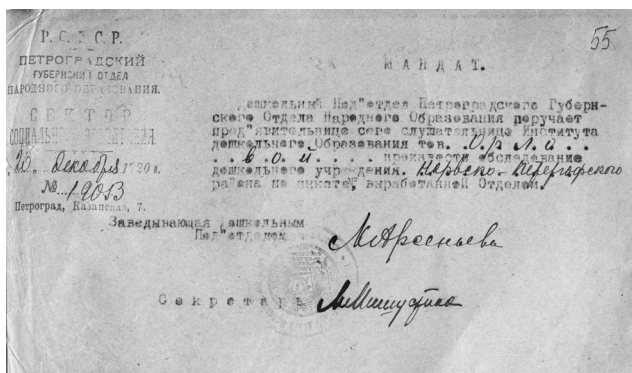 55
Р. С. Ф. С. Р.
ПЕТРОГРАДСКИЙ
ГУБЕРНСКИЙ ОТДЕЛ
НАРОДНОГО ОБРАЗОВАНИЯ.
СЕКТОР
СОЦИАЛЬНОГО ВОСПИТАНИЯ
"20" декабря 1920 г.
№ 19053
Петроград, Казанская, 7.
МАНДАТ.
Дошкольный Под"отдел Петроградского Губерн-
ского Отдела Народного Образования поручает
пред"явительнице сего слушательнице Института
дошкольного Образования тов. . О р л о . .
. . в о й . . . . произвести обследование
дошкольного учреждения. Нарвско-Петергофского
района по анкете, выработанной Отделом.
Заведывающая Дошкольным
Под"отделом
М. Арсеньева
Секретарь